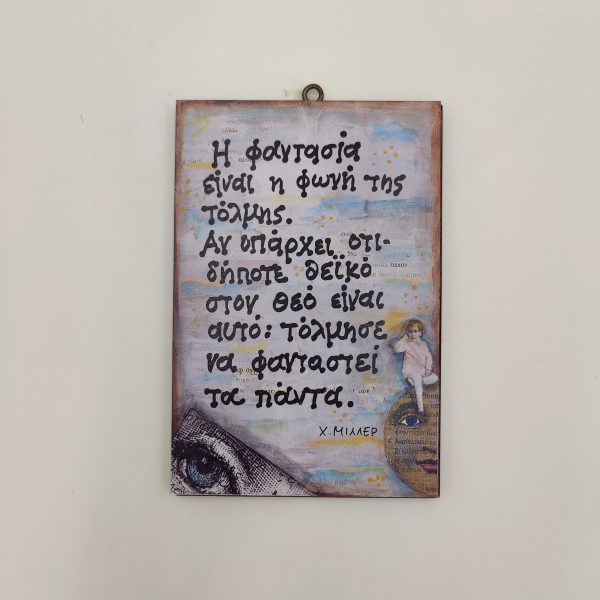 Η φαντασία
είναι η φωνή της
τόλμης.
Αν υπάρχει οτι-
δήποτε θεϊκό
στον θεό είναι
αυτό: τόλμησε
να φανταστεί
τα πάντα.
Χ. ΜΙΛΛΕΡ